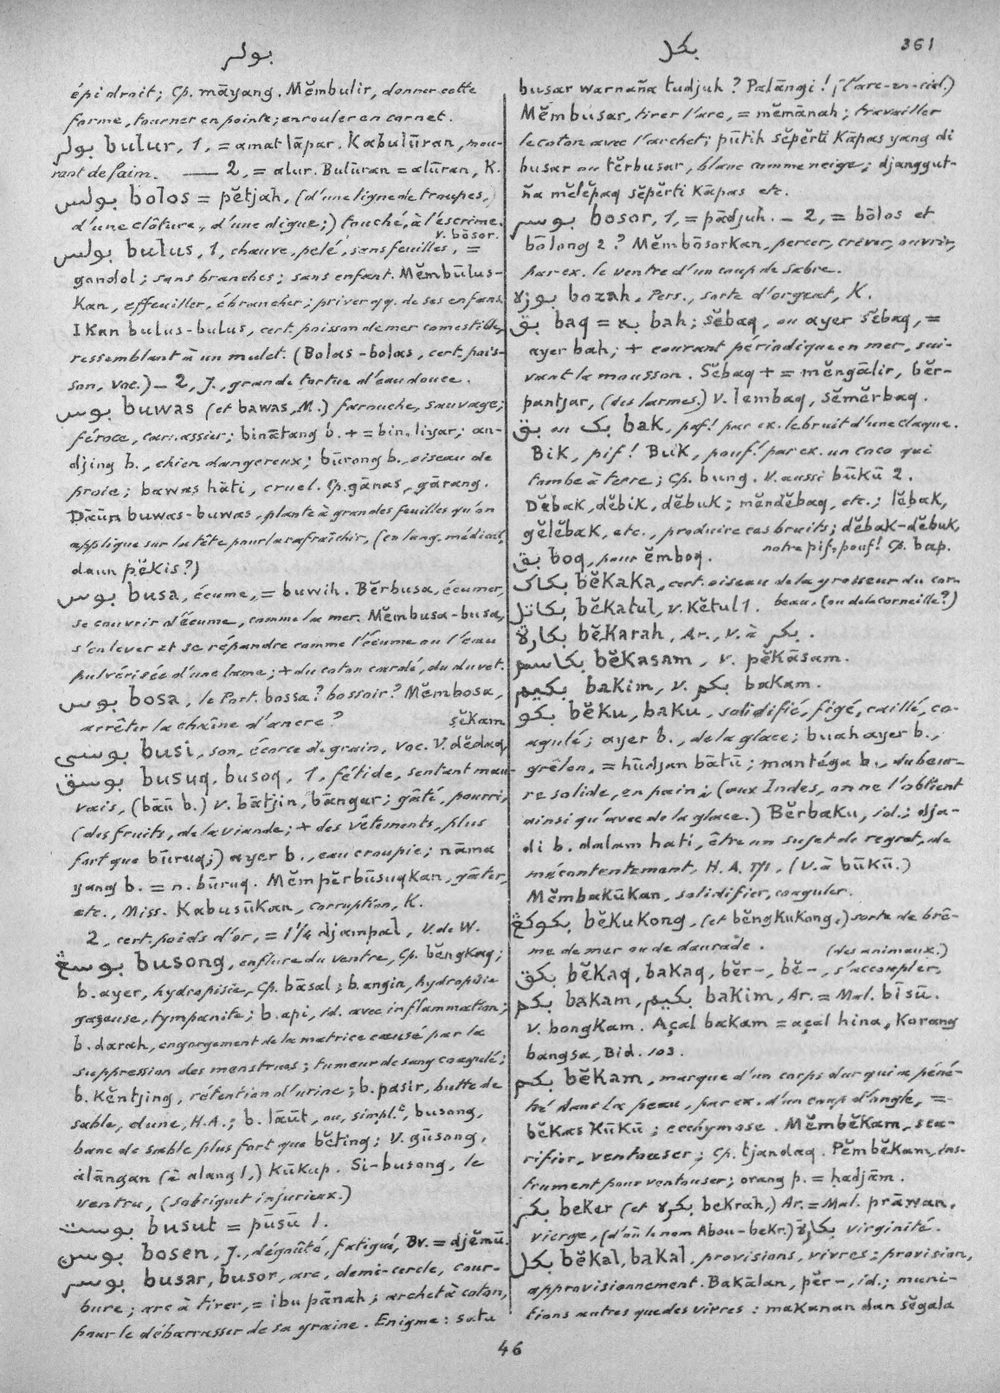 بولر
بكل
361
épi droit; Cp. māyang. Mĕmbulir, donner cette
forme, tourner en pointe; enrouler en cornet.
بولر bulur, 1, = amat lāpar. Kabulūran, mou-
rant de faim. — 2, = alur. Bulūran = alūran, K.
بولس bolos = pĕtjah, (d'une ligne de troupes,
d'une clôture, d'une digue;) touché, à l'escrime.
v. bōsor.
بولس bulus, 1, chauve, pelé, sans feuilles, =
gondol; sans branches; sans enfant. Mĕmbūlus-
kan, effeuiller, ébrancher; priver qq. de ses enfans.
Ikan bulus-bulus, cert. poisson de mer comestible,
ressemblant à un mulet. (Bolas-bolas, cert. pois-
son, voc.) — 2, J., grande tortue d'eau douce.
بوس buwas (et bawas, M.) farouche, sauvage;
féroce, carnassier; binātang b. + = bin. liyar; an-
djing b., chien dangereux; būrong b., oiseau de
proie; bawas hāti, cruel. Cp. gānas, gārang.
Dāun buwas-buwas, plante à grandes feuilles qu'on
applique sur la tête pour la rafraîchir, (en lang. médical,
daun pĕkis?)
بوس busa, écume, = buwih. Bĕrbusa, écumer,
se couvrir d'écume, comme la mer. Mĕmbusa-busa,
s'enlever et se répandre comme l'écume ou l'eau
pulvérisée d'une lame; + du coton cardé, du duvet.
بوس bosa, le Port. bossa? bossoir? Mĕmbosa,
arrêter la chaîne d'ancre? sĕkam
بوسي busi, son, écorce de grain, voc. V. dĕdaq,
بوسق busuq, busoq, 1, fétide, sentant mau-
vais, (bāū b.) v. bātjin, bāngar; gâté, pourri,
(des fruits, de la viande; + des vêtements, plus
fort que būruq;) ayer b., eau croupie; nāma
yang b. = n. būruq. Mĕmpĕrbūsuqkan, gâter,
etc., Miss. Kabusūkan, corruption, K.
2, cert. poids d'or, = 1¼ djampal, V. de W.
بوسڠ busong, enflure du ventre, Cp. bĕngkaq;
b. ayer, hydropisie, Cp. bāsal; b. angin, hydropisie
gazeuse, tympanite; b. api, id. avec inflammation;
b. darah, engorgement de la matrice causé par la
suppression des menstrues; tumeur de sang coagulé;
b. kĕntjing, rétention d'urine; b. pasir, butte de
sable, dune, H.A.; b. lāūt, ou, simplt, busong,
banc de sable plus fort que bĕting; V. gūsong,
ālāngan (à alang 1,) kūkup. Si-busong, le
ventru, (sobriquet injurieux.)
بوست busut = pusū 1.
بوسن bosen, J., dégoûté, fatigué, Bv. = djĕmū.
بوسر busar, busor, arc, demi-cercle, cour-
bure; arc à tirer, = ibu pānah; archet à coton,
pour le débarrasser de sa graine. Enigme: satu
busar warnaña tudjuh? Palāngi! (l'arc-en-ciel.)
Mĕmbusar, tirer l'arc, = mĕmānah; travailler
le coton avec l'archet; pūtih sĕpĕrti kāpas yang di
busar ou tĕrbusar, blanc comme neige; djanggut-
ña mĕlĕpaq sĕpĕrti kāpas etc.
بوسر bosor, 1, = pādjuh. — 2, = bōlos et
bōlong 2? Mĕmbōsorkan, percer, crever, ouvrir,
par ex. le ventre d'un coup de sabre.
بوزه bozah, Pers., sorte d'orgeat, K.
بق baq = به bah; sĕbaq, ou ayer sĕbaq, =
ayer bah; + courant périodique en mer, sui-
vant la mousson. Sĕbaq + = mĕngālir, bĕr-
pantjar, (des larmes.) V. lembaq, sĕmĕrbaq.
بق ou بک bak, paf! par ex. le bruit d'une claque.
Bik, pif! Buk, pouf! par ex. un coco qui
tombe à terre; Cp. bung. V. aussi būkū 2.
Dĕbak, dĕbik, dĕbuk; mĕndĕbaq, etc.; lĕbak,
gĕlĕbak, etc., produire ces bruits; dĕbak-dĕbuk,
notre pif, pouf! Cp. bap.
بق boq, pour ĕmboq.
بكاک bĕkaka, cert. oiseau de la grosseur du cor-
beau, (ou de la corneille?)
بكاتل bĕkatul, v. kĕtul 1.
بكارة bĕkarah, Ar., V. à بكر.
بكاسم bĕkasam, v. pĕkāsam.
بكيم bakim, v. بكم bakam.
بكو bĕku, baku, solidifié, figé, caillé, co-
agulé; ayer b., de la glace; buah ayer b.,
grêlon, = hūdjan bātū; mantéga b., du beur-
re solide, en pain; (aux Indes, on ne l'obtient
ainsi qu'avec de la glace.) Bĕrbaku, id.; dja-
di b. dalam hati, être un sujet de regret, de
mécontentement, H.A. 171. (V. à būkū.)
Mĕmbakūkan, solidifier, coaguler.
بكوكڠ bĕkukong, (et bĕngkukong,) sorte de brê-
me de mer ou de daurade. (des animaux.)
بكق bĕkaq, bakaq, bĕr-, bĕ-, s'accoupler,
بكم bakam, بكيم bakim, Ar. = Mal. bīsū.
V. bongkam. Açal bakam = açal hina, korang
bangsa, Bid. 103.
بكم bĕkam, marque d'un corps dur qui a péné-
tré dans la peau, par ex. d'un coup d'ongle, =
bĕkas kūkū; ecchymose. Mĕmbĕkam, sca-
rifier, ventouser; Cp. tjandaq. Pĕmbĕkam, ins-
trument pour ventouser; orang p. = ḥadjām.
بكر beker (et بكرة bekrah,) Ar. = Mal. prāwan,
vierge, (d'où le nom Abou-bekr.) بكارة virginité.
بكل bĕkal, bakal, provisions, vivres; provision,
approvisionnement. Bakālan, pĕr-, id.; muni-
tions autres que des vivres: makanan dan sĕgala
46